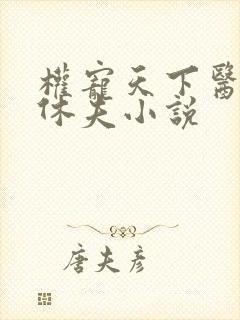 權寵天下醫
休夫小説
唐夫彦